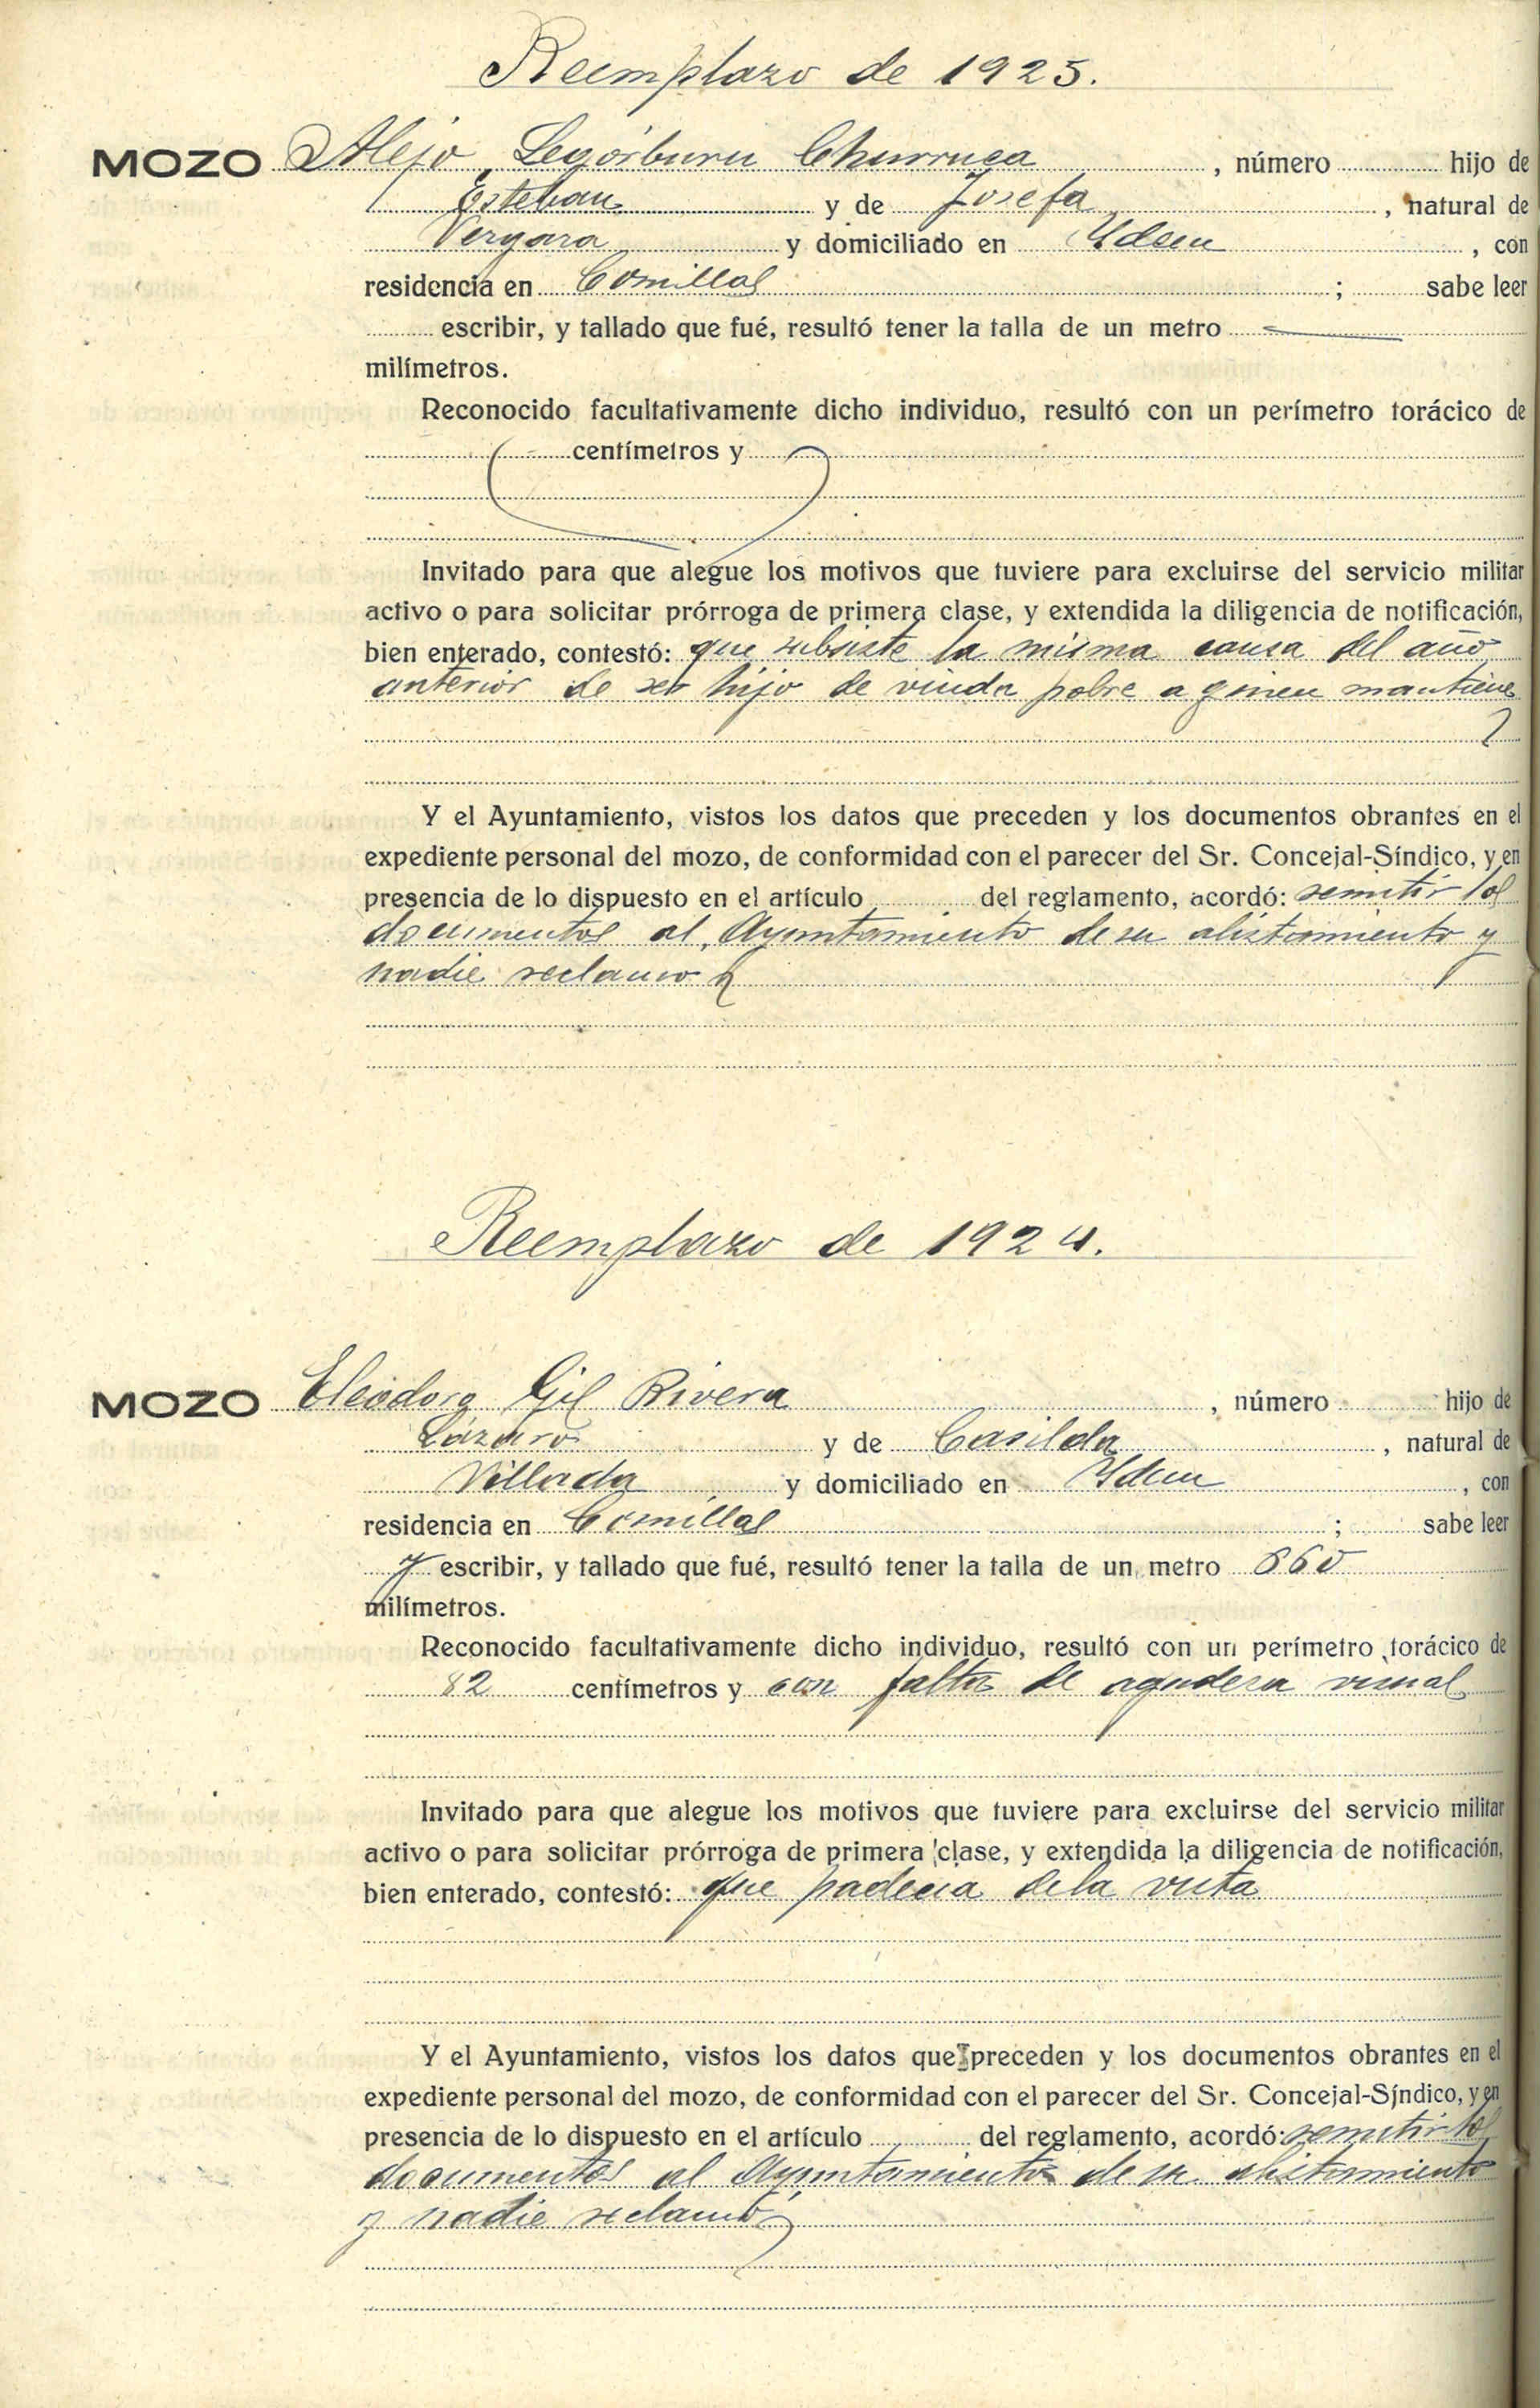 Reemplazo de 1925.
MOZO Alejo Legórburu Churruca, número hijo de
Esteban y de Josefa, natural de
Vergara y domiciliado en Ydem, con
residencia en Comillas; sabe leer
escribir, y tallado que fué, resultó tener la talla de un metro
milímetros.
Reconocido facultativamente dicho individuo, resultó con un perímetro torácico de
centímetros y
Invitado para que alegue los motivos que tuviere para excluirse del servicio militar
activo o para solicitar prórroga de primera clase, y extendida la diligencia de notificación,
bien enterado, contestó: que subsiste la misma causa del año
anterior de ser hijo de viuda pobre a quien mantiene
Y el Ayuntamiento, vistos los datos que preceden y los documentos obrantes en el
expediente personal del mozo, de conformidad con el parecer del Sr. Concejal-Síndico, y en
presencia de lo dispuesto en el artículo del reglamento, acordó: remitir los
documentos al Ayuntamiento de su alistamiento y
nadie reclamo
Reemplazo de 1924.
MOZO Eleodoro Gil Rivera, número hijo de
Lázaro y de Casilda, natural de
Villada y domiciliado en Ydem, con
residencia en Comillas; sabe leer
y escribir, y tallado que fué, resultó tener la talla de un metro 660
milímetros.
Reconocido facultativamente dicho individuo, resultó con un perímetro torácico de
82 centímetros y con falta de agudeza visual
Invitado para que alegue los motivos que tuviere para excluirse del servicio militar
activo o para solicitar prórroga de primera clase, y extendida la diligencia de notificación,
bien enterado, contestó: que padecia de la vista
Y el Ayuntamiento, vistos los datos que preceden y los documentos obrantes en el
expediente personal del mozo, de conformidad con el parecer del Sr. Concejal-Síndico, y en
presencia de lo dispuesto en el artículo del reglamento, acordó: remitir los
documentos al Ayuntamiento de su alistamiento
y nadie reclamó